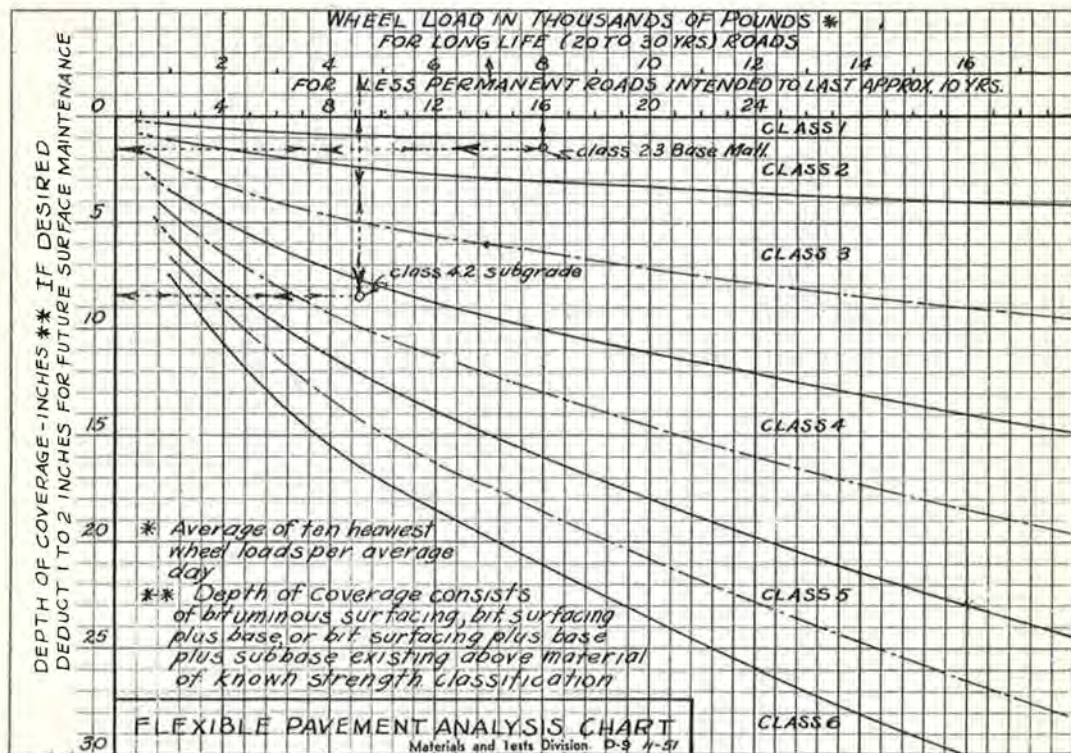 WHEEL LOAD IN THOUSANDS OF POUNDS *
FOR LONG LIFE (20 TO 30 YRS) ROADS
2 4 6 7 8 10 12 14 16
FOR LESS PERMANENT ROADS INTENDED TO LAST APPROX. 10 YRS.
4 8 12 16 20 24
DEPTH OF COVERAGE-INCHES ** IF DESIRED
DEDUCT 1 TO 2 INCHES FOR FUTURE SURFACE MAINTENANCE
0
5
10
15
20
25
30
CLASS 1
class 2.3 Base Matl.
CLASS 2
CLASS 3
class 4.2 subgrade
CLASS 4
CLASS 5
CLASS 6
* Average of ten heaviest
wheel loads per average
day
** Depth of coverage consists
of bituminous surfacing, bit. surfacing
plus base, or bit surfacing plus base
plus subbase existing above material
of known strength classification
FLEXIBLE PAVEMENT ANALYSIS CHART
Materials and Tests Division D-9 11-51